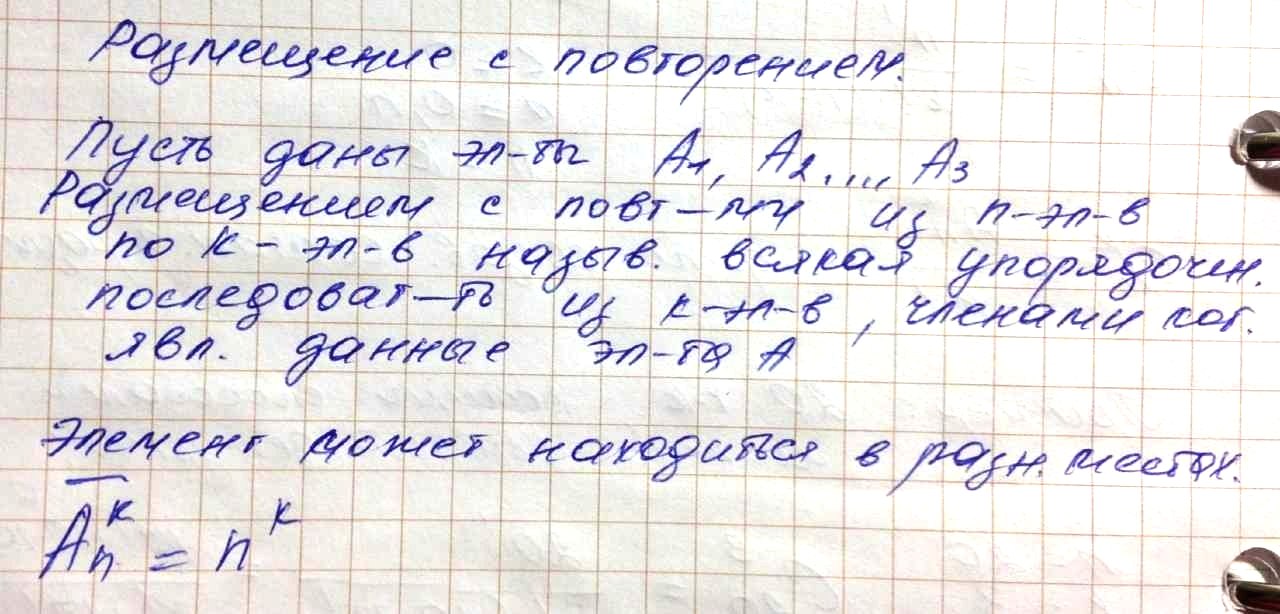 Размещение с повторением.
Пусть даны эл-ты A₁, A₂ ...., A₃
Размещением с повт-ми из n-эл-в
по k-эл-в назыв. всякая упорядочен.
последоват-ть из k-эл-в, членами кот.
явл. данные эл-та A
Элемент может находиться в разн. местах.
A̅ₙᵏ = nᵏ